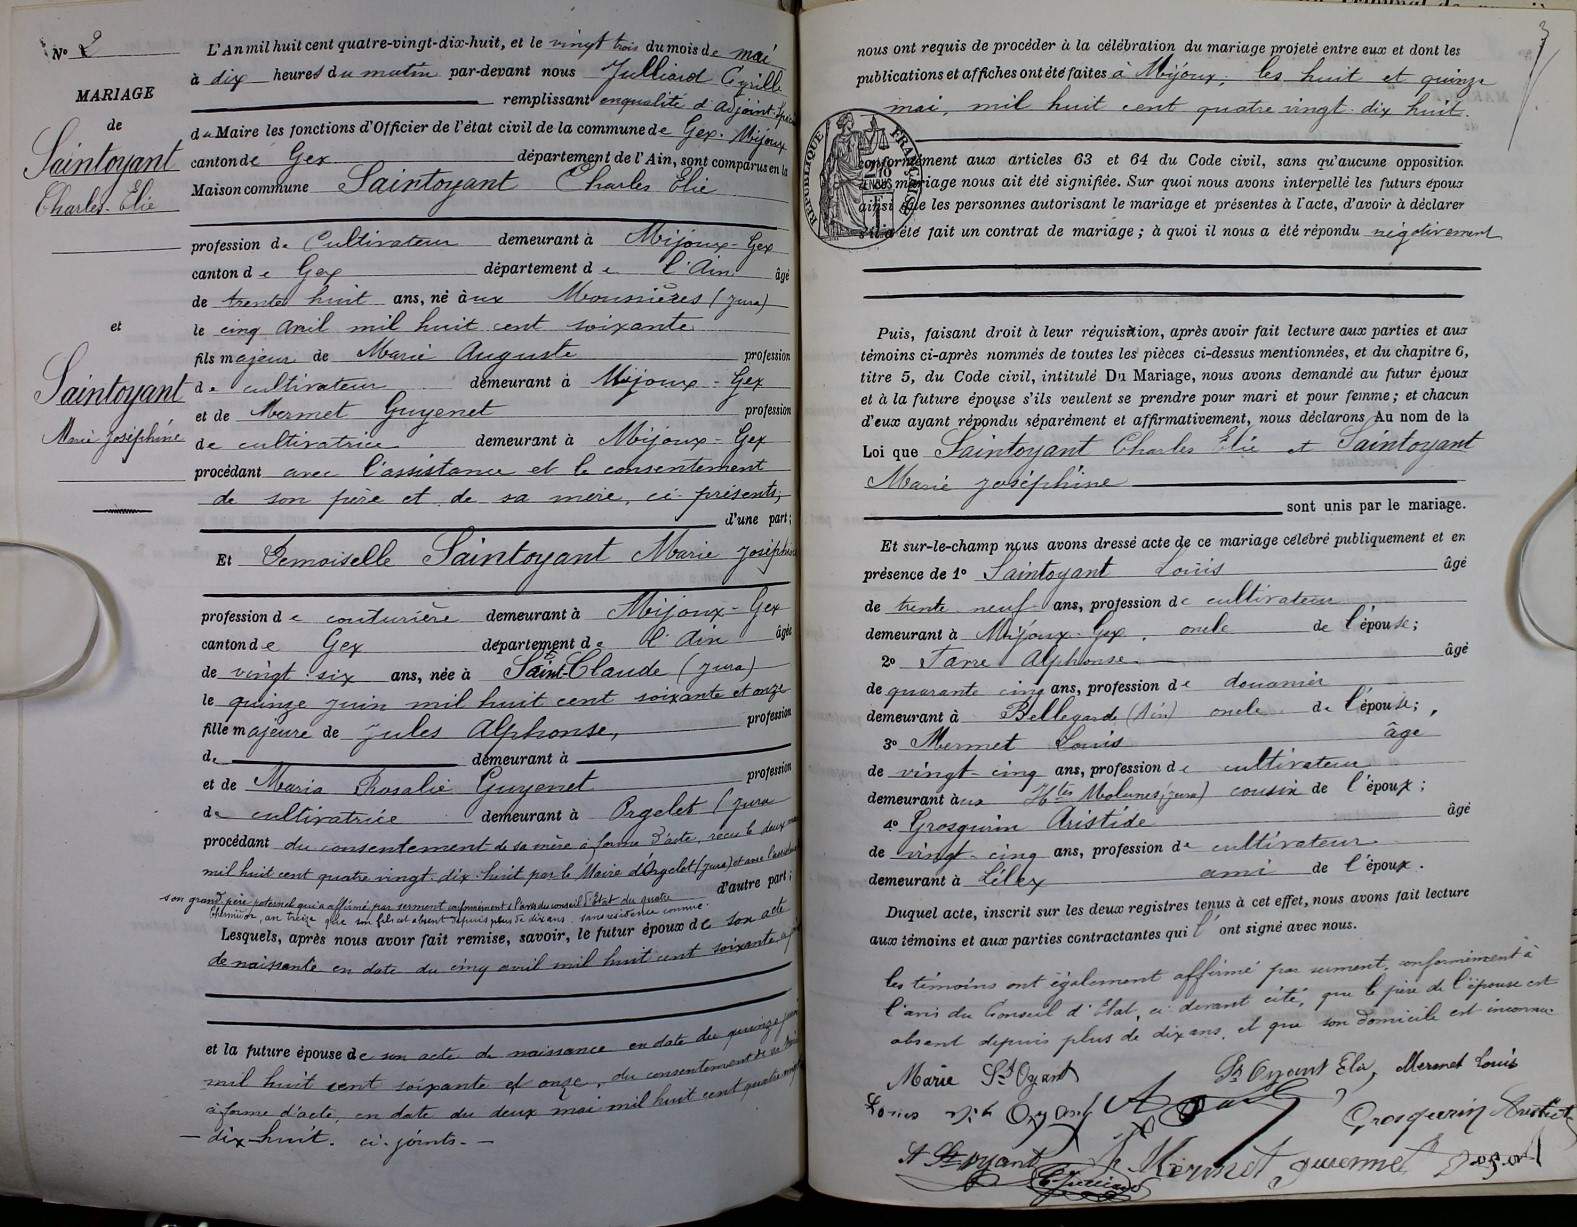 No 2
MARIAGE
de
Saintoyant
Charles-Elie
et
Saintoyant
Marie Joséphine
L'An mil huit cent quatre-vingt-dix-huit, et le vingt trois du mois de mai
à dix heures du matin par-devant nous Julliard Cyrille
remplissant en qualité d'adjoint
du Maire les fonctions d'Officier de l'état civil de la commune de Gex-Mijoux
canton de Gex département de l'Ain, sont comparus en la
Maison commune Saintoyant Charles Elie
profession de Cultivateur demeurant à Mijoux-Gex
canton de Gex département de l'Ain âgé
de trente huit ans, né aux Mousnières (Jura)
le cinq avril mil huit cent soixante
fils majeur de Marie Auguste profession
de cultivateur demeurant à Mijoux-Gex
et de Mermet Guyenet profession
de cultivatrice demeurant à Mijoux-Gex
procédant avec l'assistance et le consentement
de son père et de sa mère, ci-présents;
d'une part;
Et Demoiselle Saintoyant Marie Joséphine
profession de couturière demeurant à Mijoux-Gex
canton de Gex département de l'Ain âgée
de vingt-six ans, née à Saint-Claude (Jura)
le quinze juin mil huit cent soixante et onze
fille majeure de Jules Alphonse, profession
de demeurant à
et de Maria Rosalie Guyenet profession
de cultivatrice demeurant à Orgelet (Jura
procédant du consentement de sa mère à forme d'acte, reçu le deux mai
mil huit cent quatre vingt dix-huit par le Maire d'Orgelet (Jura) et avec l'assistance
d'autre part;
son grand père paternel qui a affirmé par serment conformément à l'avis du conseil d'Etat du quatre
thermidor, an treize que son fils est absent depuis plus de dix ans sans résidence connue.
Lesquels, après nous avoir fait remise, savoir, le futur époux de son acte
de naissante en date du cinq avril mil huit cent soixante
et la future épouse de son acte de naissance en date du quinze juin
mil huit cent soixante et onze, du consentement de sa
à forme d'acte, en date du deux mai mil huit cent quatre vingt
- dix-huit. ci-joints.-
3
nous ont requis de procéder à la célébration du mariage projeté entre eux et dont les
publications et affiches ont été faites à Mijoux, les huit et quinze
mai, mil huit cent quatre vingt-dix huit.
RÉPUBLIQUE FRANÇAISE
CENT.
conformément aux articles 63 et 64 du Code civil, sans qu'aucune opposition
au mariage nous ait été signifiée. Sur quoi nous avons interpellé les futurs époux
ainsi que les personnes autorisant le mariage et présentes à l'acte, d'avoir à déclarer
s'il a été fait un contrat de mariage; à quoi il nous a été répondu négativement
Puis, faisant droit à leur réquisition, après avoir fait lecture aux parties et aux
témoins ci-après nommés de toutes les pièces ci-dessus mentionnées, et du chapitre 6,
titre 5, du Code civil, intitulé Du Mariage, nous avons demandé au futur époux
et à la future épouse s'ils veulent se prendre pour mari et pour femme; et chacun
d'eux ayant répondu séparément et affirmativement, nous déclarons Au nom de la
Loi que Saintoyant Charles Elie et Saintoyant
Marie Joséphine
sont unis par le mariage.
Et sur-le-champ nous avons dressé acte de ce mariage célébré publiquement et en
présence de 1o Saintoyant Louis âgé
de trente-neuf ans, profession de cultivateur
demeurant à Mijoux-Gex, oncle de l'épouse;
2o Alphonse âgé
de quarante cinq ans, profession de douanier
demeurant à Bellegarde (Ain) oncle de l'épouse;
3o Mermet Louis âgé
de vingt-cinq ans, profession de cultivateur
demeurant aux Htes Molunes (Jura) cousin de l'époux;
4o Grosgurin Aristide âgé
de vingt-cinq ans, profession de cultivateur
demeurant à Lélex ami de l'époux.
Duquel acte, inscrit sur les deux registres tenus à cet effet, nous avons fait lecture
aux témoins et aux parties contractantes qui l'ont signé avec nous.
les témoins ont également affirmé par serment, conformément à
l'avis du Conseil d'Etat, ci devant cité, que le père de l'épouse est
absent depuis plus de dix ans, et que son domicile est inconnu.
Marie St Oyant St Oyant Elie, Mermet Louis
Louis St Oyant Grosgurin Aristide
A St Oyant Mermet guienet
C Julliard